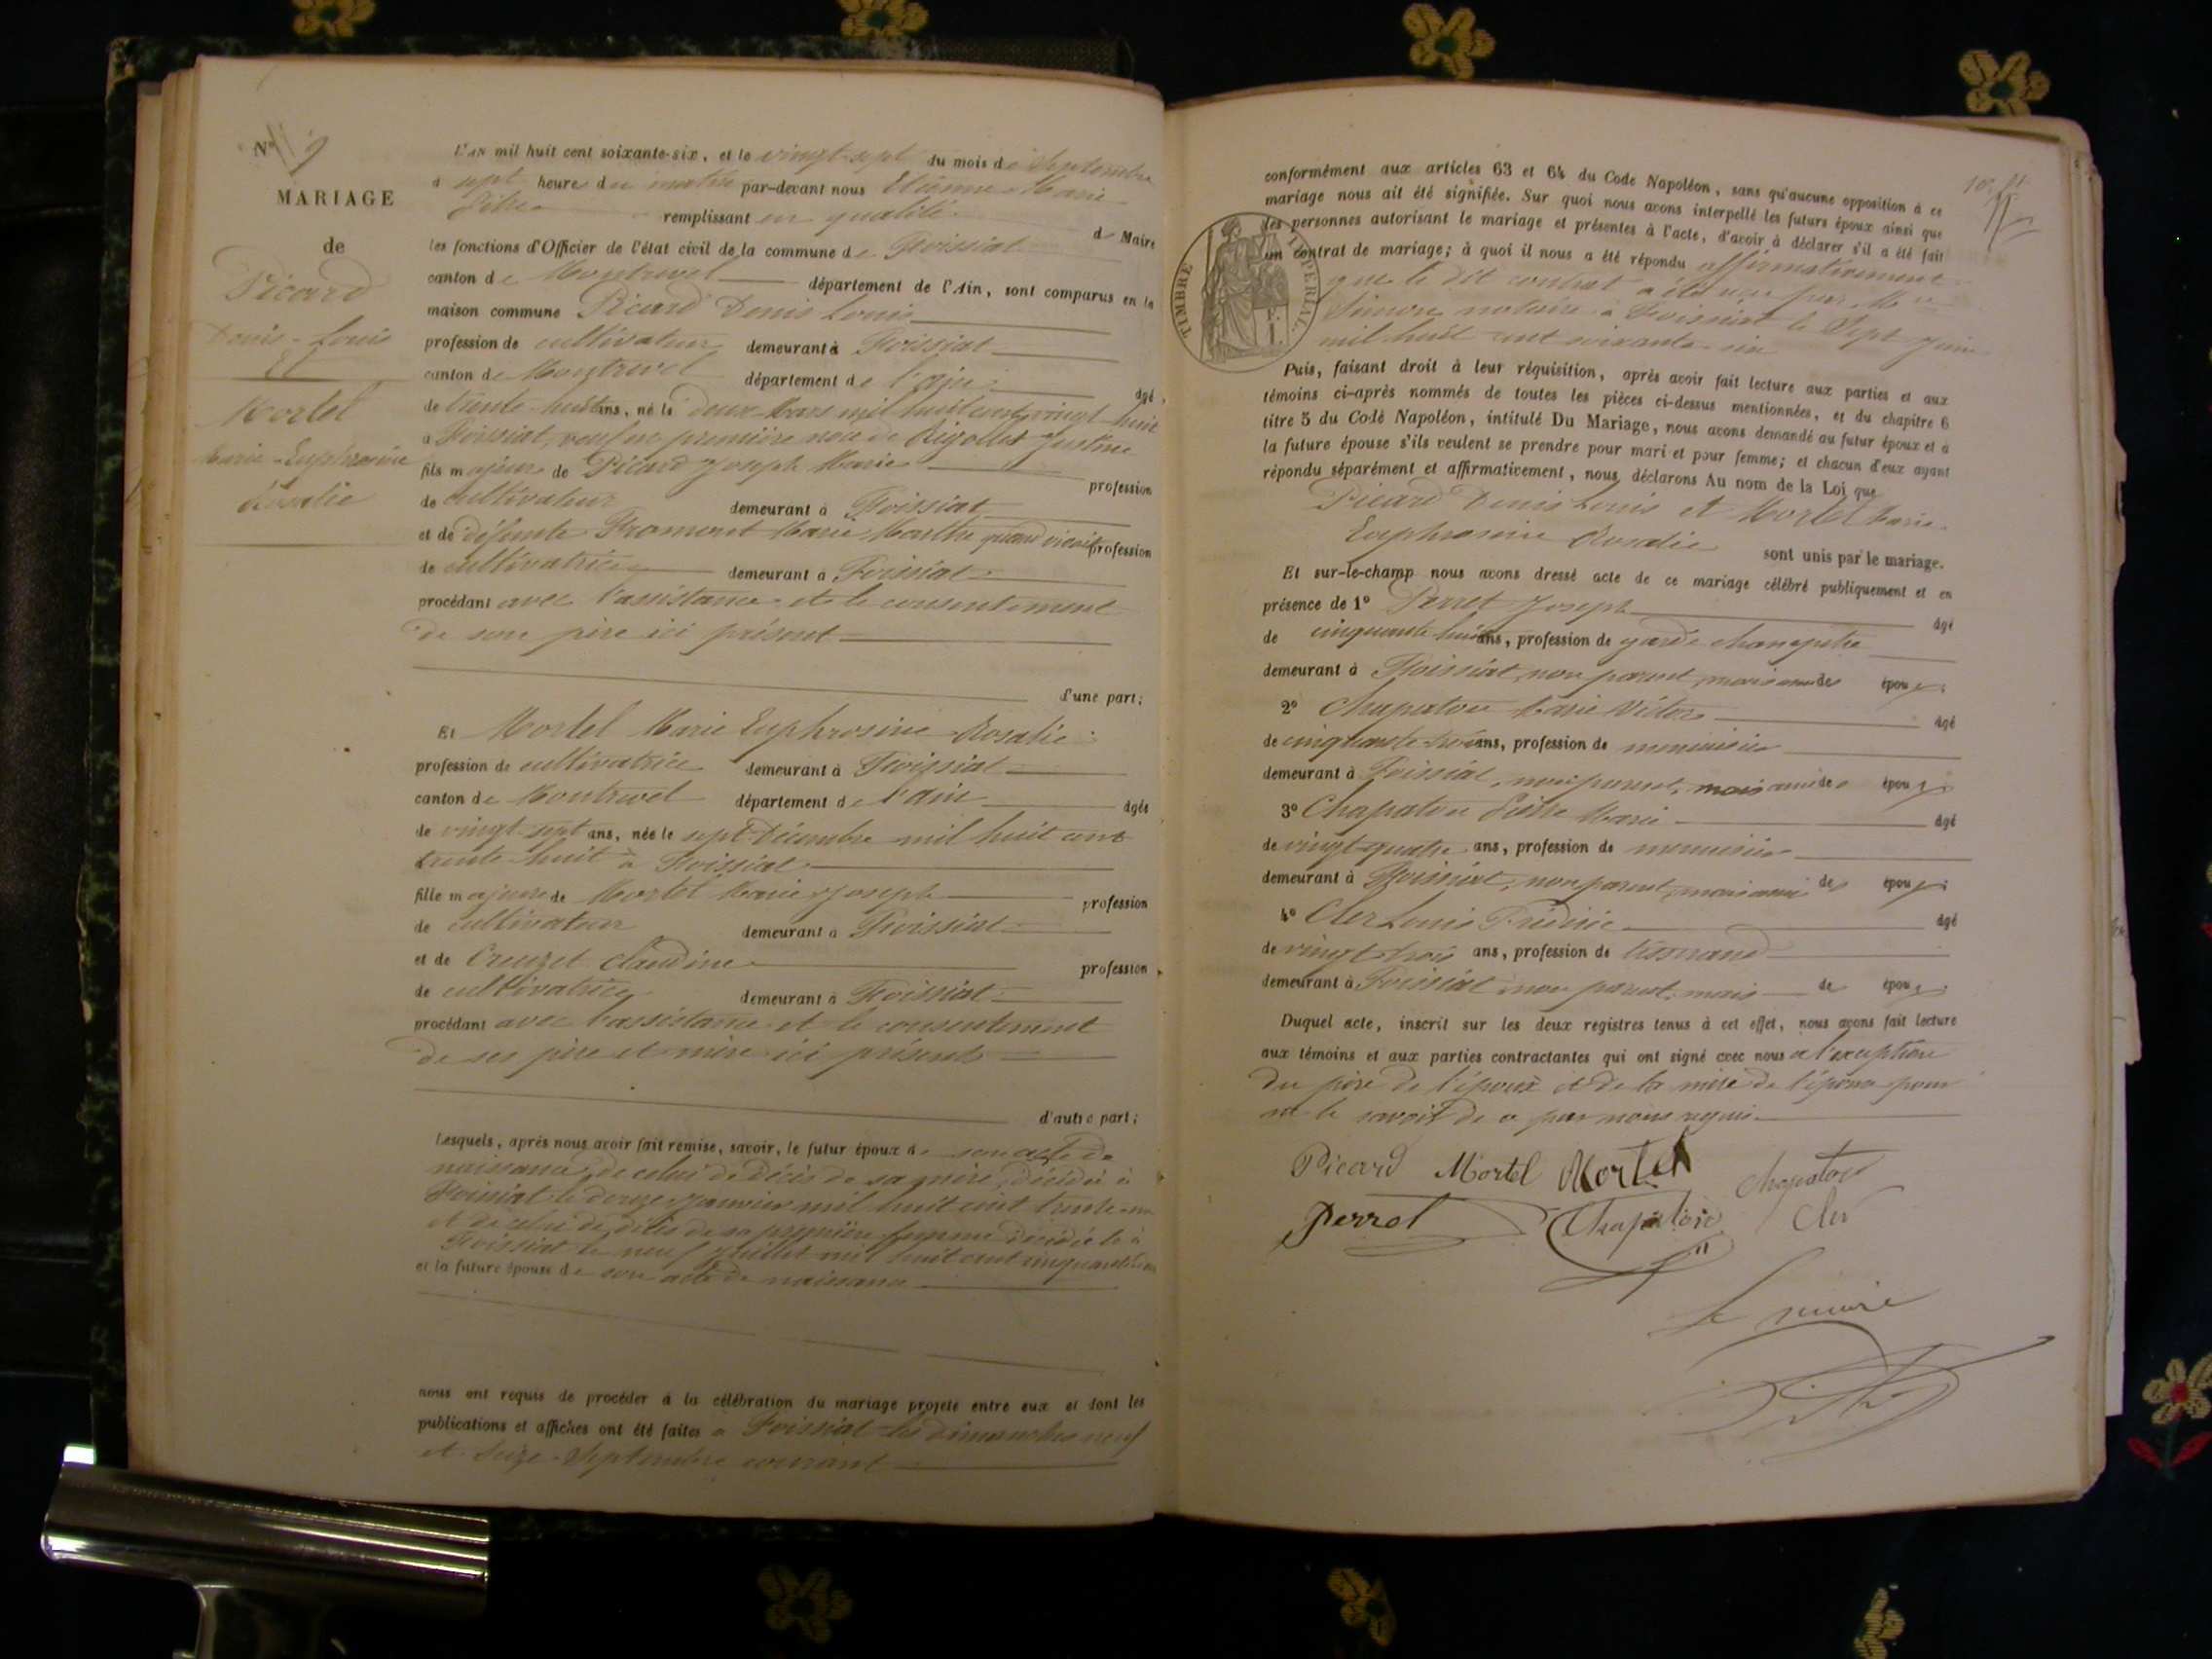 N° 9
MARIAGE
de
Picard
Denis-Louis
Et
Mortel
Marie-Euphrosine
Rosalie
L'AN mil huit cent soixante-six, et le vingt-sept du mois de Septembre
à sept heures du matin par-devant nous Etienne Marie
remplissant en qualité de Maire
les fonctions d'Officier de l'état civil de la commune de Foissiat
canton de Montrevel département de l'Ain, sont comparus en la
maison commune Picard Denis Louis
profession de cultivateur demeurant à Foissiat
canton de Montrevel département de l'ain âgé
de trente-huit ans, né le deux Mars mil huit cent vingt-huit
à Foissiat, veuf en première noce de Rigollet Justine
fils majeur de Picard Joseph Marie profession
de cultivateur demeurant à Foissiat
et de défunte Fromont Marie Marthe quand vivait profession
de cultivatrice demeurant à Foissiat
procédant avec l'assistance et le consentement
de son père ici présent
d'une part;
Et Mortel Marie Euphrosine Rosalie
profession de cultivatrice demeurant à Foissiat
canton de Montrevel département de l'ain âgée
de vingt-sept ans, née le sept Décembre mil huit cent
trente-huit à Foissiat
fille majeure de Mortel Marie Joseph profession
de cultivateur demeurant à Foissiat
et de Creuzet Claudine profession
de cultivatrice demeurant à Foissiat
procédant avec l'assistance et le consentement
de ses père et mère ici présents
d'autre part;
Lesquels, après nous avoir fait remise, savoir, le futur époux de son acte de
naissance, de celui de décès de sa mère, décédée à
Foissiat le douze Janvier mil huit cent trente-un
et de celui de décès de sa première femme décédée à
Foissiat le neuf Juillet mil huit cent cinquante
et la future épouse de son acte de naissance
nous ont requis de procéder à la célébration du mariage projeté entre eux et dont les
publications et affiches ont été faites à Foissiat les dimanches neuf
et seize Septembre courant
conformément aux articles 63 et 64 du Code Napoléon, sans qu'aucune opposition à ce
mariage nous ait été signifiée. Sur quoi nous avons interpellé les futurs époux ainsi que
des personnes autorisant le mariage et présentes à l'acte, d'avoir à déclarer s'il a été fait
un contrat de mariage; à quoi il nous a été répondu affirmativement
que le dit contrat a été reçu par Me
Simon notaire à Foissiat le Sept Juin
mil huit cent soixante-six
TIMBRE IMPERIAL
Puis, faisant droit à leur réquisition, après avoir fait lecture aux parties et aux
témoins ci-après nommés de toutes les pièces ci-dessus mentionnées, et du chapitre 6
titre 5 du Code Napoléon, intitulé Du Mariage, nous avons demandé au futur époux et à
la future épouse s'ils veulent se prendre pour mari et pour femme; et chacun d'eux ayant
répondu séparément et affirmativement, nous déclarons Au nom de la Loi que
Picard Denis Louis et Mortel Marie
Euphrosine Rosalie sont unis par le mariage.
Et sur-le-champ nous avons dressé acte de ce mariage célébré publiquement et en
présence de 1° Perret Joseph âgé
de cinquante huit ans, profession de garde champêtre
demeurant à Foissiat, non parent, mais ami des époux;
2° Chapaton Marie Victor âgé
de cinquante trois ans, profession de menuisier
demeurant à Foissiat, non parent, mais ami des époux;
3° Chapaton Marie âgé
de vingt-quatre ans, profession de menuisier
demeurant à Foissiat, non parent, mais ami des époux;
4° Cler Louis Frédéric âgé
de vingt-trois ans, profession de tisserand
demeurant à Foissiat, non parent, mais de époux;
Duquel acte, inscrit sur les deux registres tenus à cet effet, nous avons fait lecture
aux témoins et aux parties contractantes qui ont signé avec nous à l'exception
du père de l'époux et de la mère de l'épouse pour
ne le savoir de ce par nous requis
Picard Mortel Mortel Chapaton
Perret Chapaton Cler
Le maire